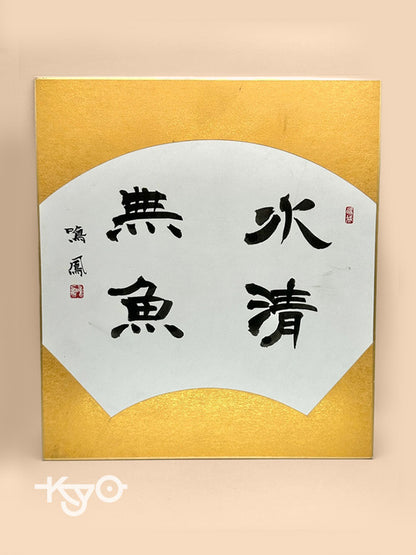 水清
無魚
鳴鳳
KyO